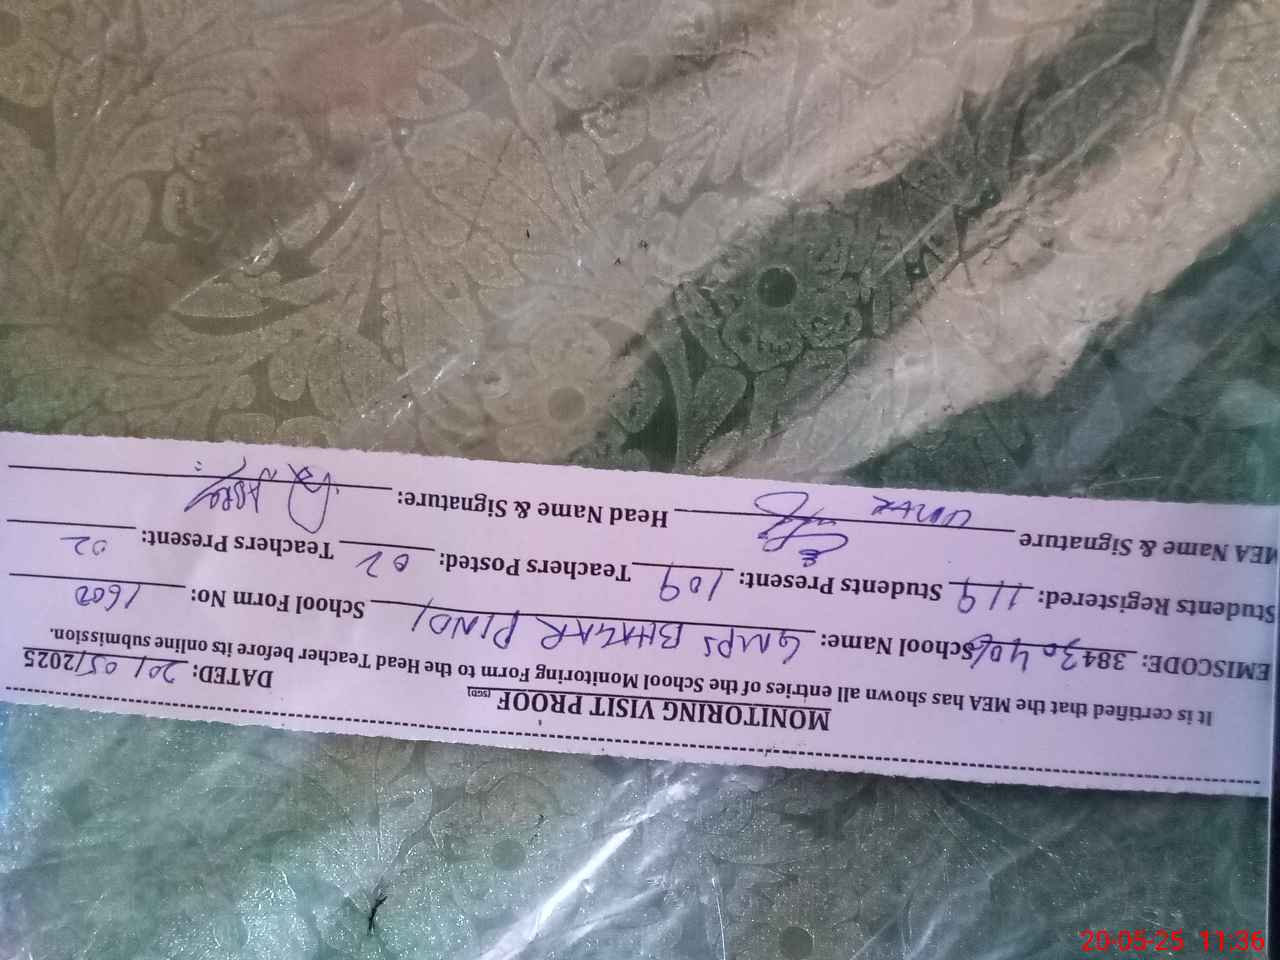 MONITORING VISIT PROOF (SGD)
DATED: 20/05/2025
It is certified that the MEA has shown all entries of the School Monitoring Form to the Head Teacher before its online submission.
EMISCODE: 384 30 406 School Name: GMPS BHAZAR PINDI School Form No: 1600
Students Registered: 119 Students Present: 109 Teachers Posted: 02 Teachers Present: 02
MEA Name & Signature Head Name & Signature:
20-05-25 11:36